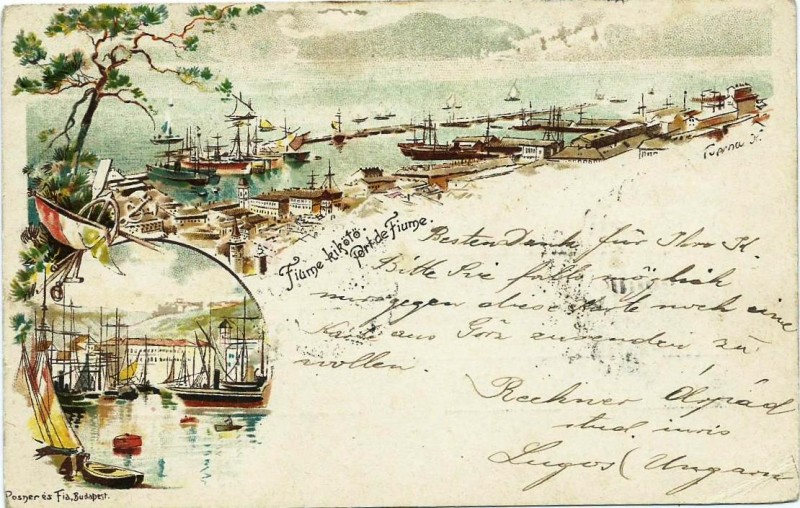 Fiume-kikötő.
Port de Fiume.
Besten Dank für Ihre K.
Bitte Sie falls möglich
mir gegen diese Karte noch eine
Karte aus Görz zusenden zu
wollen.
Rechner Árpád
stud. iuris
Lugos (Ungarn
Posner és Fia, Budapest.